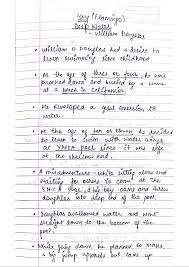 (Flamingo)
Deep Water
- William Douglas
• William O Douglas had a desire to
learn swimming since childhood.
• At the age of three or four, he was
knocked down and buried by a wave
at a beach in California.
• He developed a great aversion to
water.
• At the age of ten or eleven he decided
to learn to swim with water wings
at YMCA pool since it was safe
at the shallow end.
• A misadventure - while sitting alone and
waiting for others to come at the
YMCA pool, a big boy came and threw
Douglas into deep end of the pool.
• Douglas swallowed water and went
straight down to the bottom of the
pool.
• While going down he planned to make
a big jump upwards but came up